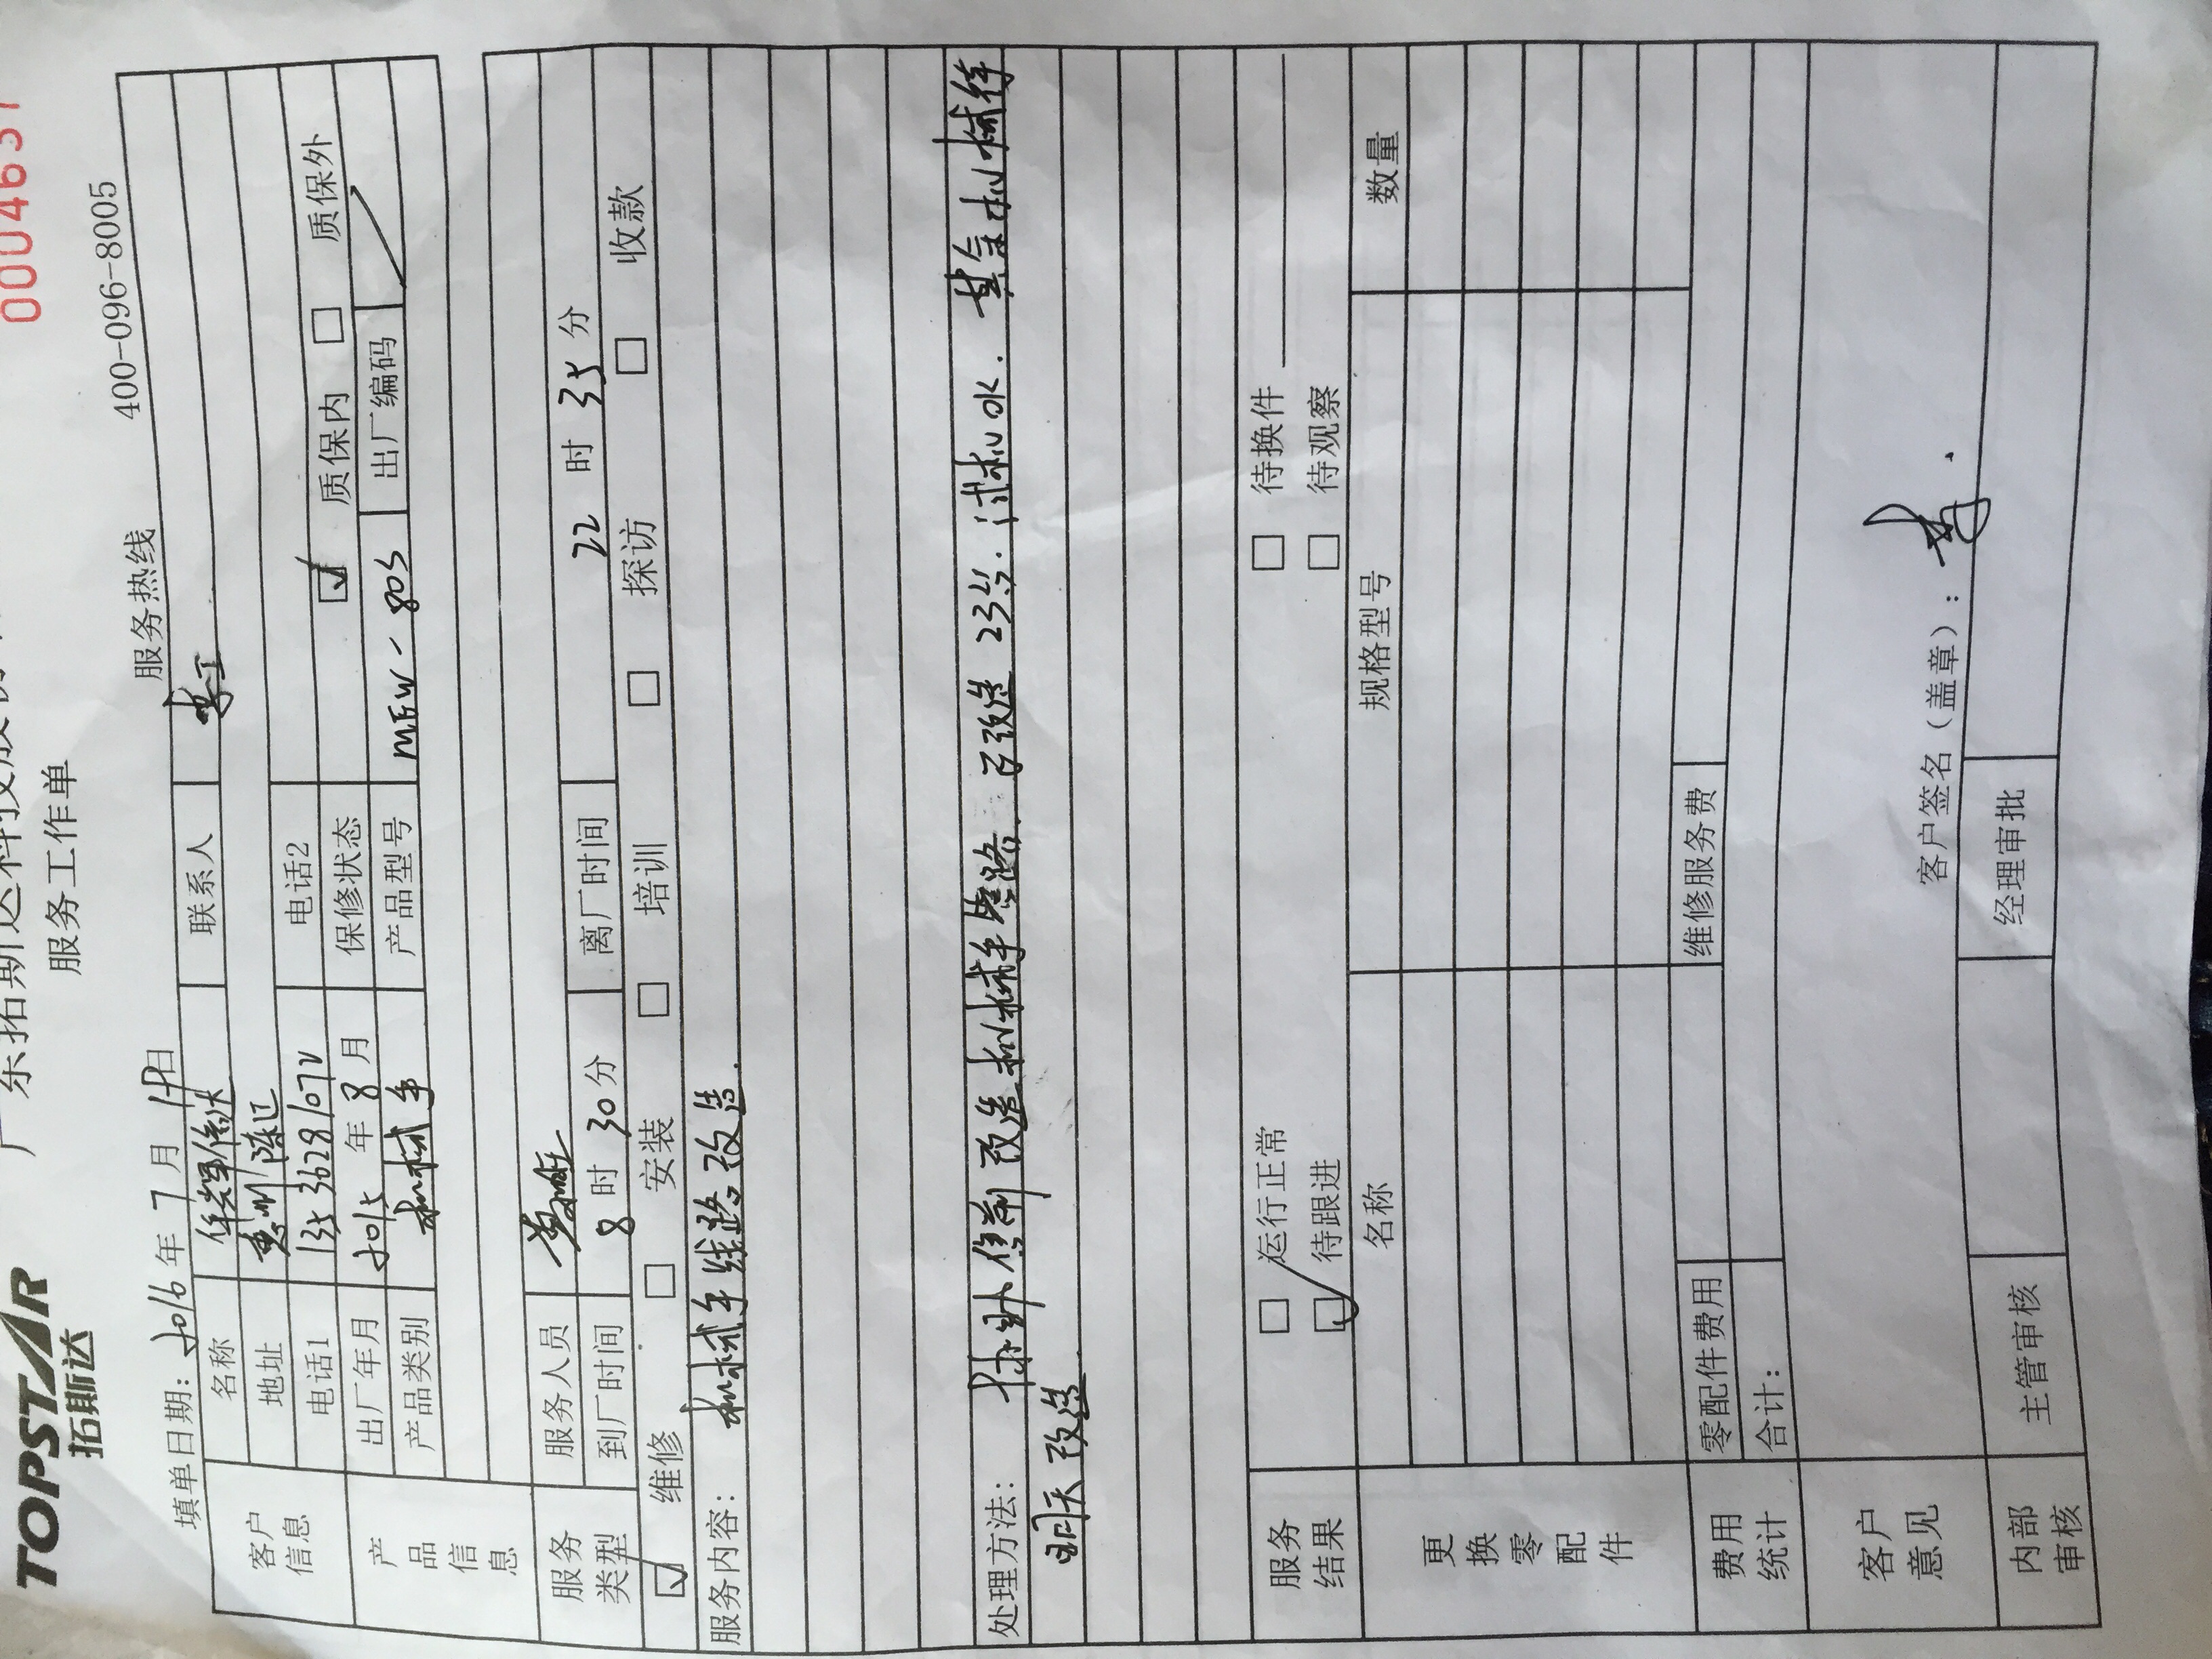 TOPSTAR
拓斯达
0004637
广东拓斯达科技股份
服务工作单
填单日期：2016年7月19日 服务热线 400-096-8005
客户信息
名称 华辉信达 联系人 李工
地址 惠州陈江
电话1 1353628107 电话2
产品信息
出厂年月 2015年8月 保修状态 质保内 质保外
产品类别 机械手 产品型号 MEW-80S 出厂编码
服务类型
服务人员
到厂时间 8时30分 离厂时间 22时35分
维修 安装 培训 探访 收款
服务内容： 机械手线路改造.
处理方法： 改造机械手线路. 已改造23台. 试机OK. 其余机械待
明天改造
服务结果
运行正常 待换件
待跟进 待观察
更换零配件
名称 规格型号 数量
费用统计
零配件费用 维修服务费
合计：
客户意见
客户签名（盖章）：
内部审核
主管审核 经理审批